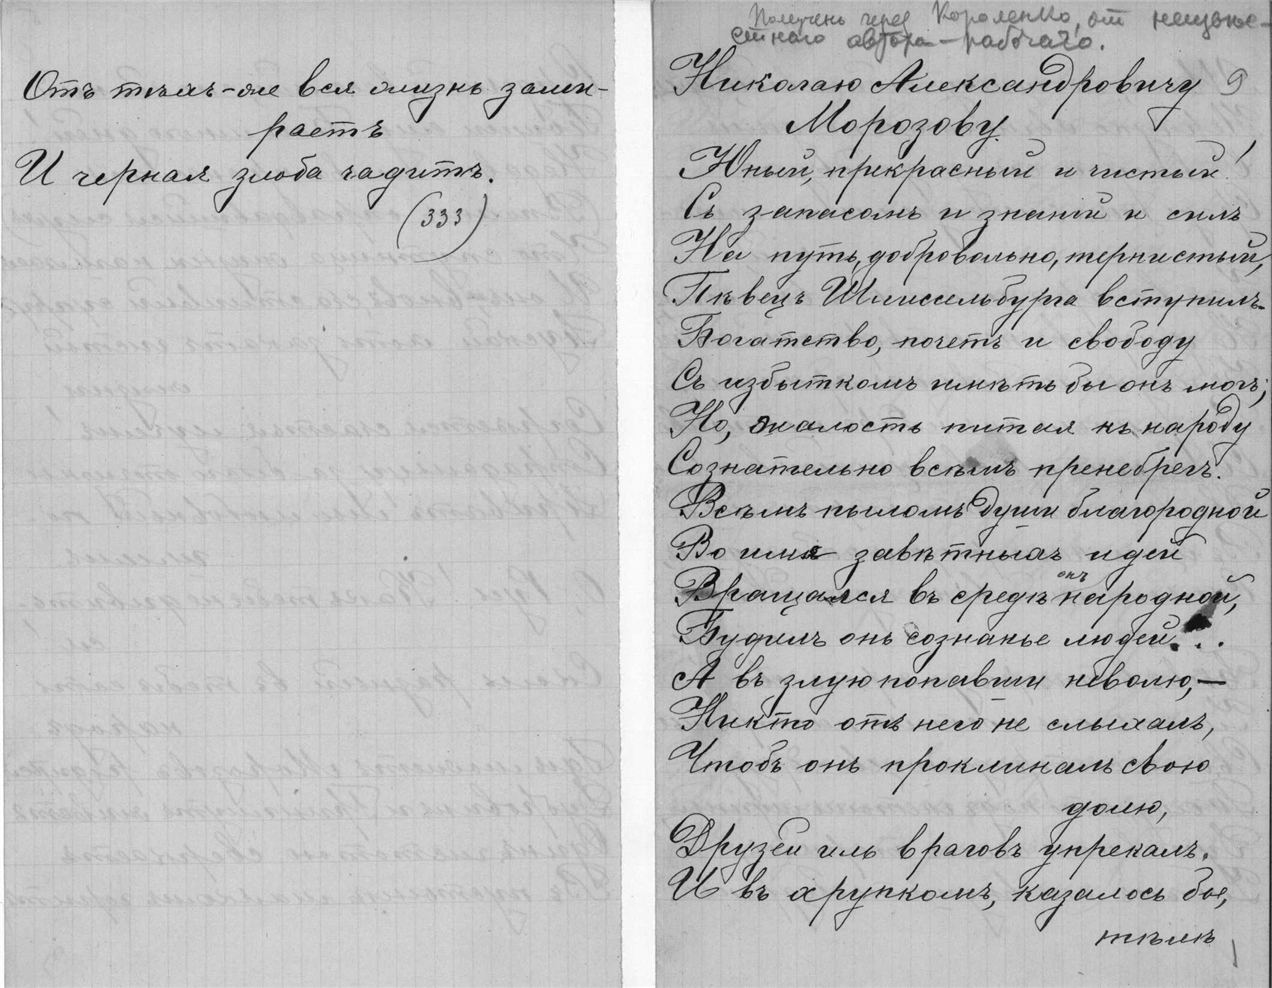 Отъ тѣхъ-же вся жизнь зами-
раетъ
И черная злоба чадитъ.
(333)
Полученъ через Короленко, от неизвѣс-
стнаго автора - рабочаго.
Николаю Александровичу 9
Морозову.
Юный, прекрасный и чистый!
Съ запасомъ и знаній и силъ
На путь, добровольно, тернистый,
Пѣвецъ Шлиссельбурга вступилъ.
Богатство, почетъ и свободу
Съ избыткомъ имѣть бы онъ могъ;
Но, жалость питая къ народу
Сознательно всѣмъ пренебрегъ.
Всѣмъ пыломъ души благородной
Во имя завѣтныхъ идей
Вращался въ средѣ онъ народной,
Будилъ онъ сознанье людей...
А въ злую попавши неволю,—
Никто отъ него не слыхалъ,
Чтобъ онъ проклиналъ свою
долю,
Друзей иль враговъ упрекалъ.
И въ хрупкомъ, казалось бы,
тѣлѣ